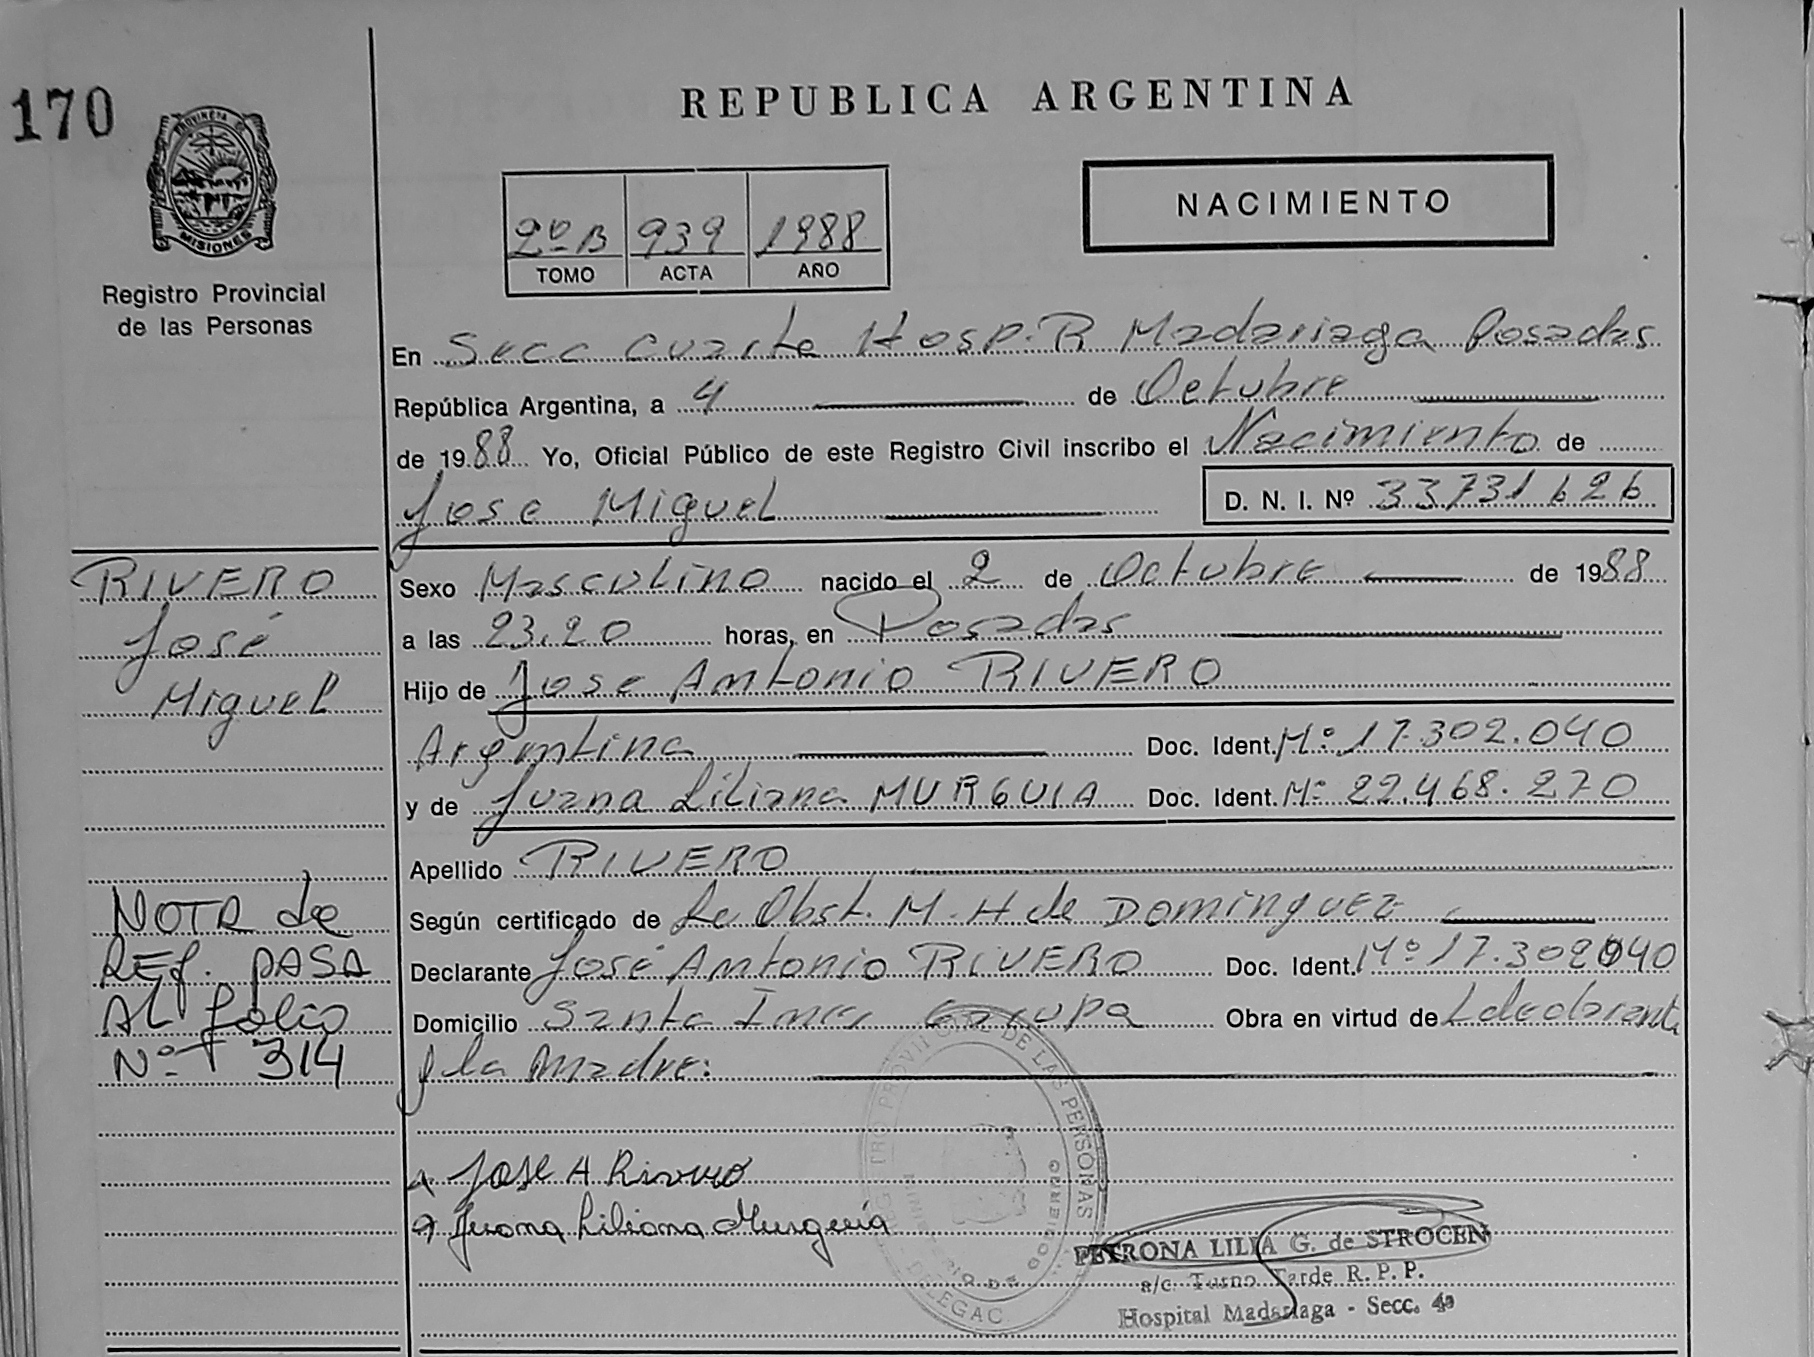 170
REPUBLICA ARGENTINA
PROVINCIA DE
MISIONES
Registro Provincial
de las Personas
2º B 939 1988
TOMO ACTA AÑO
NACIMIENTO
En Secc Cuarta Hosp. R Madariaga Posadas
República Argentina, a 4 de Octubre
de 1988 Yo, Oficial Público de este Registro Civil inscribo el Nacimiento de
Jose Miguel D. N. I. Nº 33731626
RIVERO
José
Miguel
Sexo Masculino nacido el 2 de Octubre de 1988
a las 23.20 horas, en Posadas
Hijo de Jose Antonio RIVERO
Argentina Doc. Ident. Mº 17.302.040
y de Juana Liliana MURGUIA Doc. Ident. Mº 22.468.270
Apellido RIVERO
Según certificado de La Obst. M. H de Dominguez
Declarante José Antonio RIVERO Doc. Ident. Mº 17.302040
Domicilio Santa Ines Garupa Obra en virtud de L declarante
y la Madre:
NOTA de
REF. PASA
AL folio
Nº 314
Jose A Rivero
Juana Liliana Murguía
REGISTRO PROVINCIAL DE LAS PERSONAS
MINISTERIO DE GOBIERNO
DELEGAC
PETRONA LILIA G. de STROCEN
a/c. Turno Tarde R. P. P.
Hospital Madariaga - Secc. 4ª